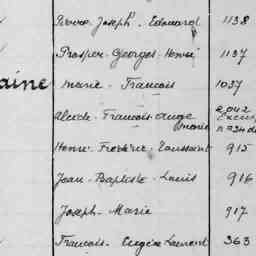 Pierre-Joseph-Edouard 1138
Prosper-Georges-Henri 1137
aine Marie-Francois 1037
Alcide-Francois-Ange
Marie
Henri-Frederic-Toussaint 915
Jean-Baptiste-Louis 916
Joseph-Marie 917
Francois-Eugene-Laurent 363